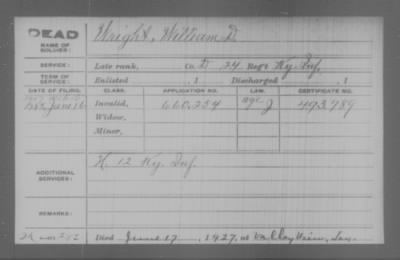 DEAD
NAME OF SOLDIER: Wright, William D.
SERVICE: Late rank, Co. D 24 Reg't Ky. Inf.
TERM OF SERVICE: Enlisted , 1 Discharged , 1
DATE OF FILING. CLASS. APPLICATION NO. LAW. CERTIFICATE NO.
June 16 Invalid, 660,254 age J 493,789
Widow,
Minor,
ADDITIONAL SERVICES: H. 12 Ky. Inf.
REMARKS:
Died June 17, 1927, at Valley View,